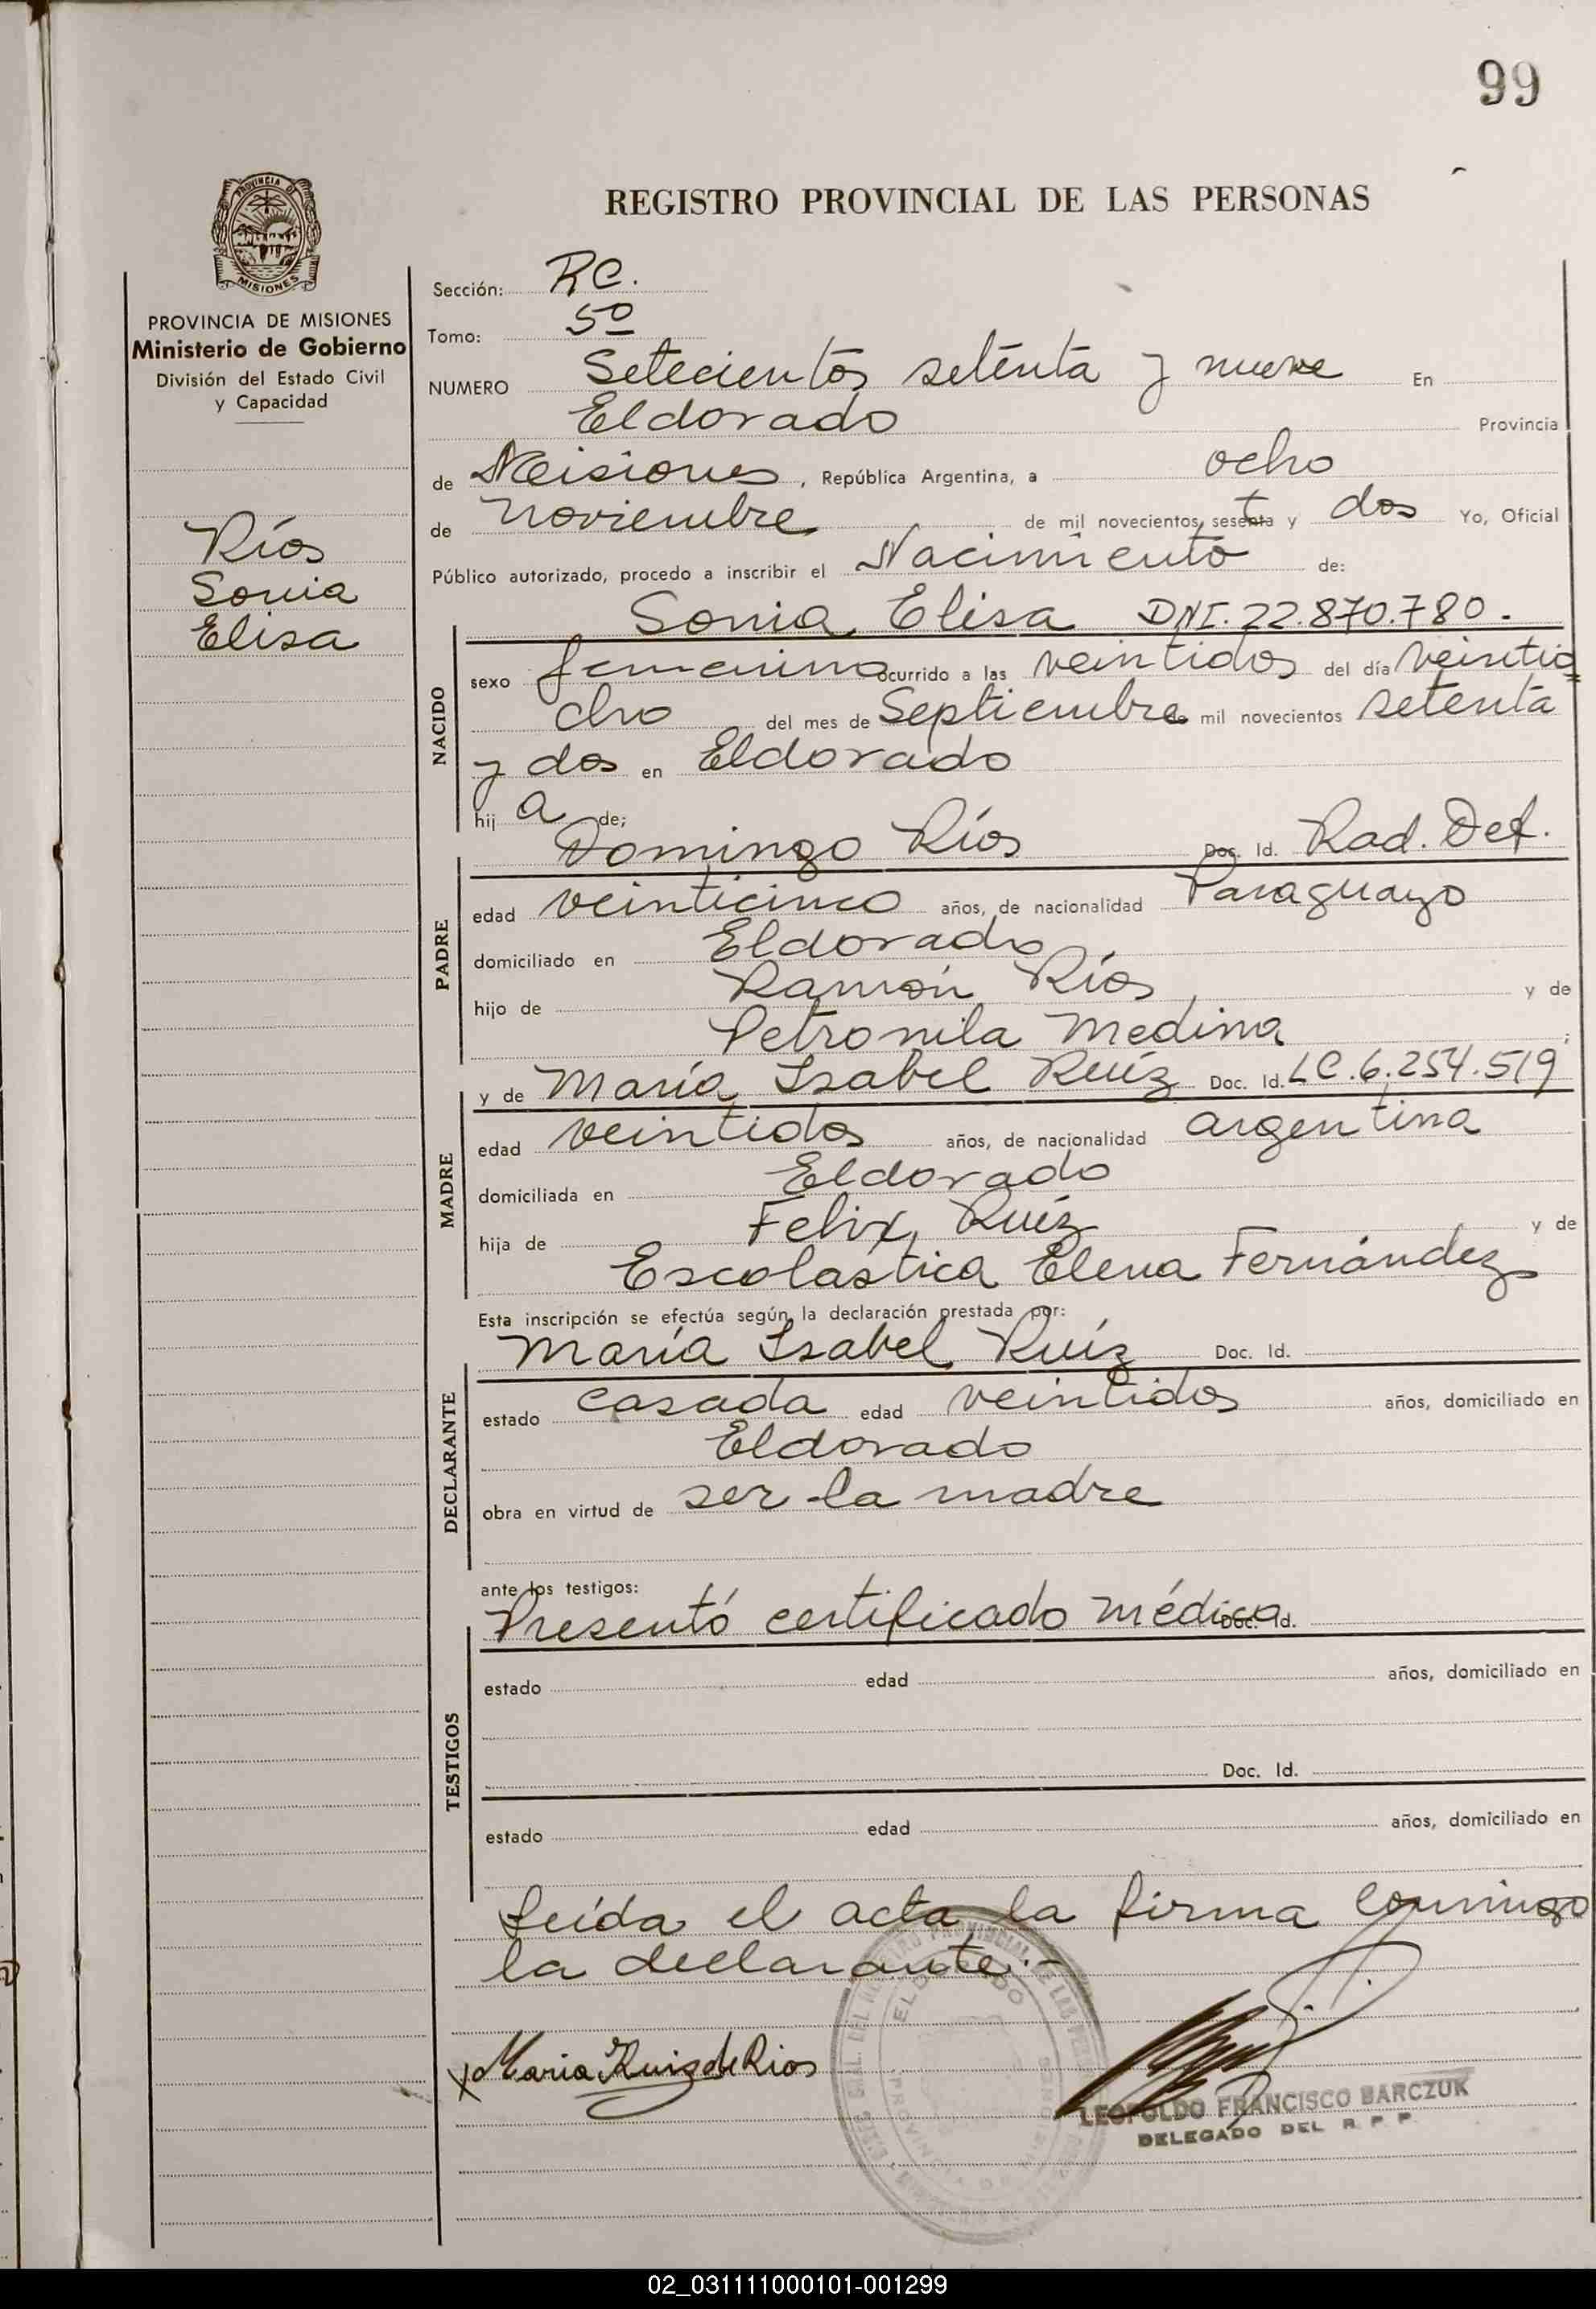 99
REGISTRO PROVINCIAL DE LAS PERSONAS
PROVINCIA DE
MISIONES
PROVINCIA DE MISIONES
Ministerio de Gobierno
División del Estado Civil
y Capacidad
Ríos
Sonia
Elisa
Sección: RC.
Tomo: 5º
NUMERO Setecientos setenta y nueve En
Eldorado Provincia
de Misiones, República Argentina, a ocho
de Noviembre de mil novecientos setenta y dos Yo, Oficial
Público autorizado, procedo a inscribir el Nacimiento de:
Sonia Elisa DNI. 22.870.780.-
NACIDO
sexo femenino ocurrido a las veintidos del día veintio
cho del mes de Septiembre de mil novecientos setenta
y dos en Eldorado
hij a de;
Domingo Ríos Doc. Id. Rad. Def.
PADRE
edad veinticinco años, de nacionalidad Paraguayo
domiciliado en Eldorado
hijo de Ramón Ríos y de
Petronila Medina ;
y de María Isabel Ruíz Doc. Id. LC.6.254.519
MADRE
edad veintidos años, de nacionalidad argentina
domiciliada en Eldorado
hija de Felix Ruíz y de
Escolastica Elena Fernández
Esta inscripción se efectúa según la declaración prestada por:
María Isabel Ruíz Doc. Id.
DECLARANTE
estado casada edad veintidos años, domiciliado en
Eldorado
obra en virtud de ser la madre
ante los testigos:
Presentó certificado médico Doc. Id.
TESTIGOS
estado edad años, domiciliado en
Doc. Id.
estado edad años, domiciliado en
Leída el acta la firma conmigo
la declarante.-
x Maria Ruiz de Rios
ELDORADO
LEOPOLDO FRANCISCO BARCZUK
DELEGADO DEL R. P. P.
02_031111000101-001299